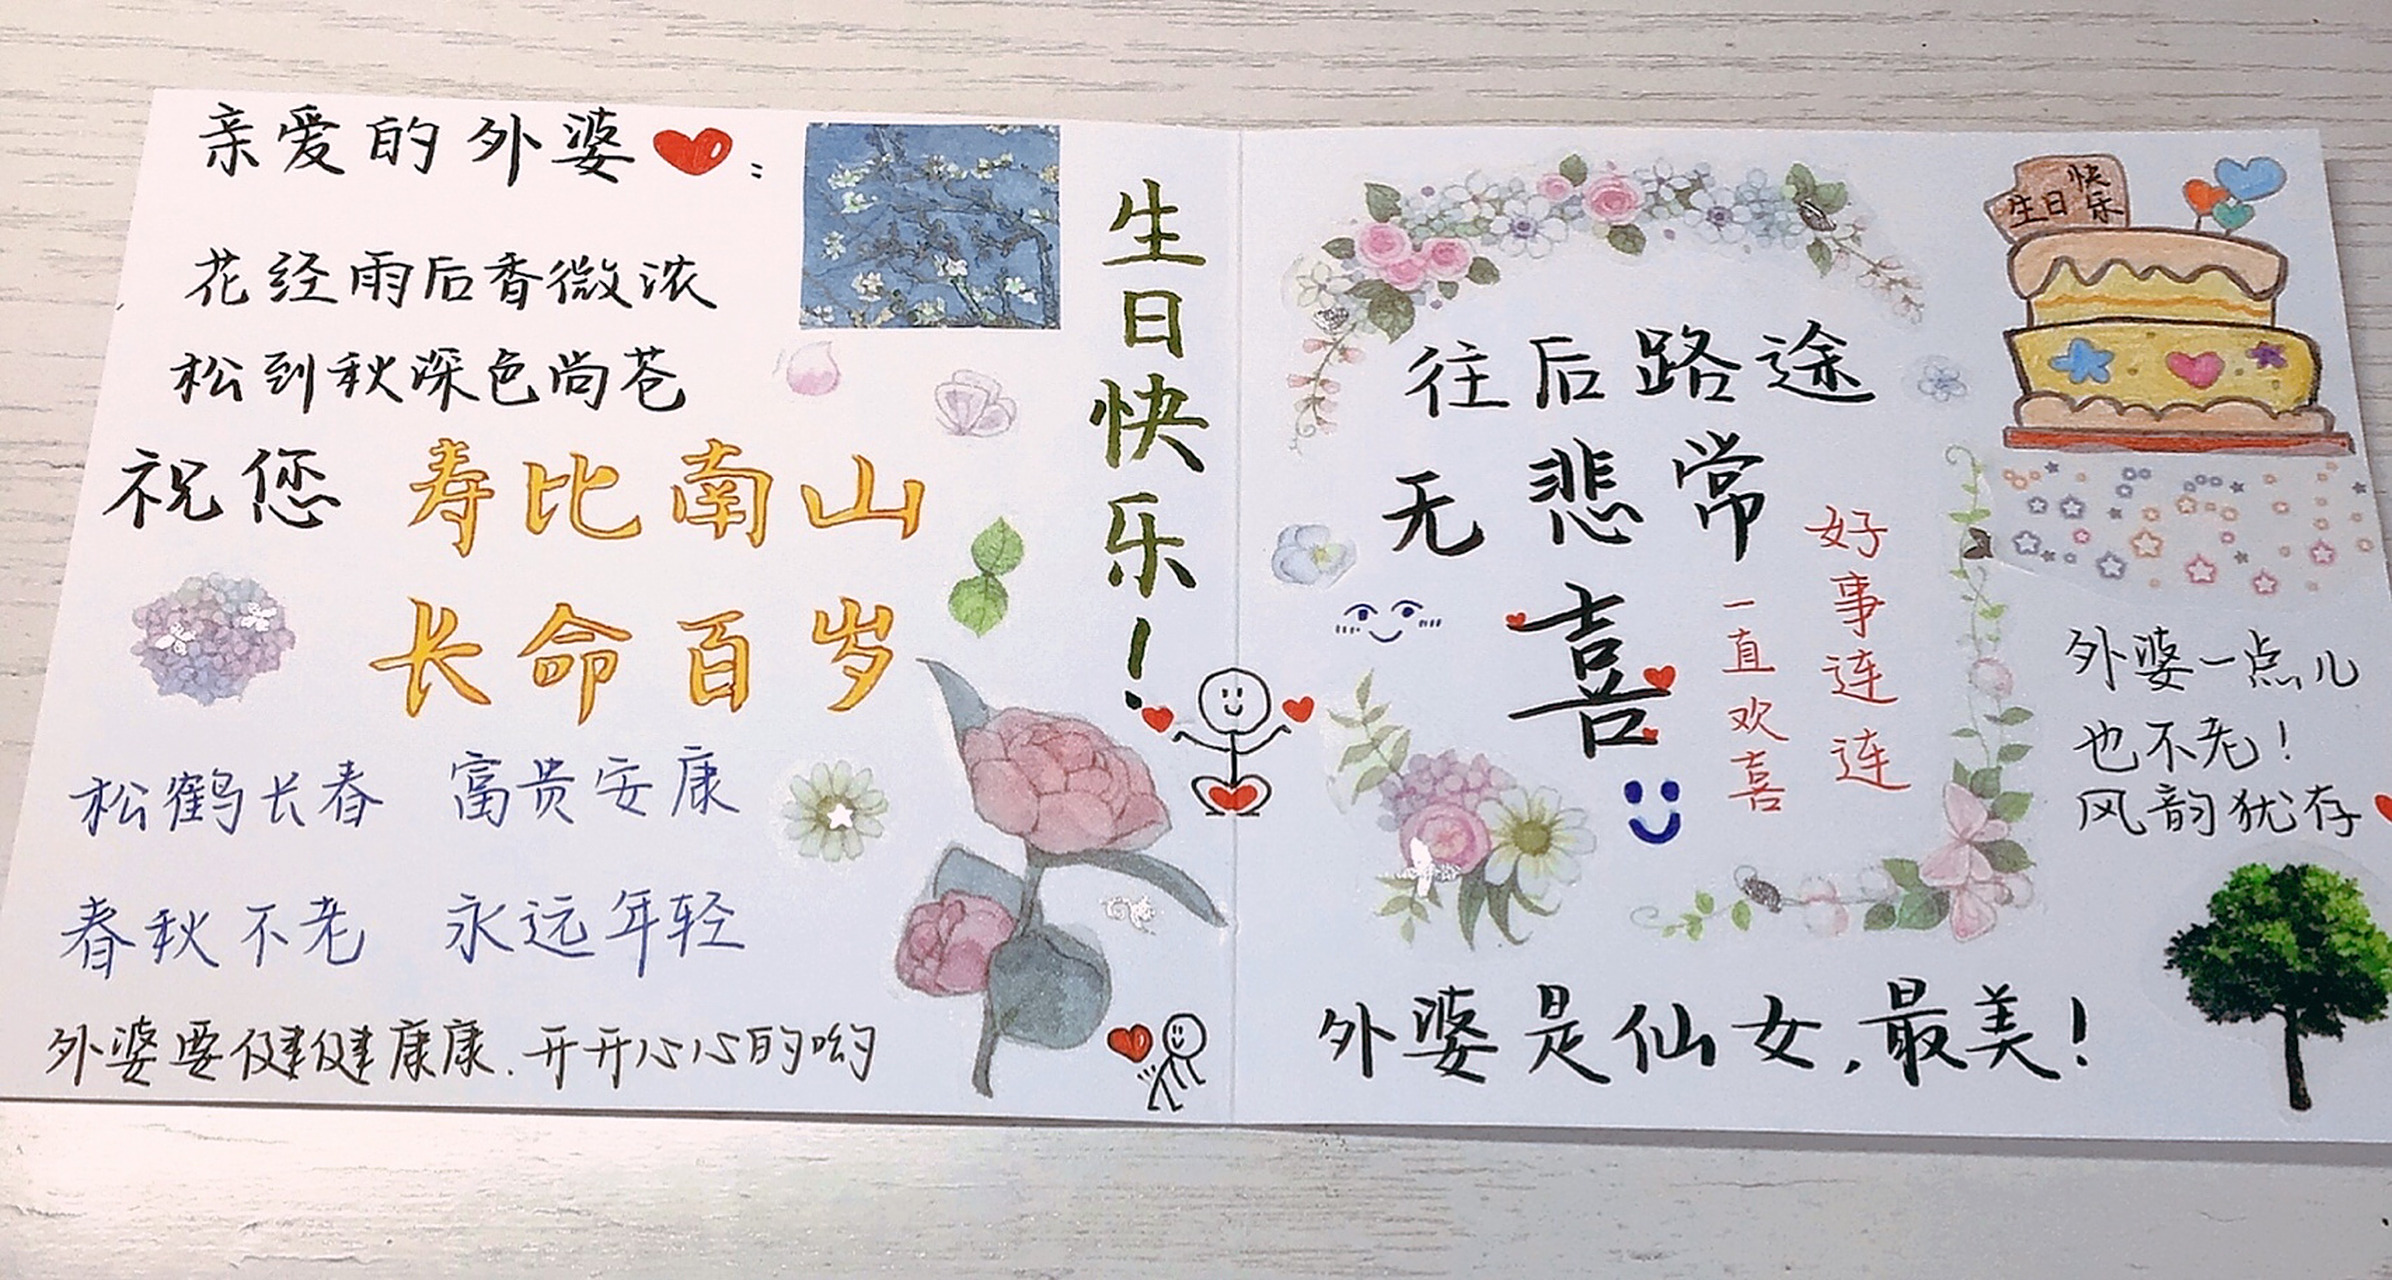 亲爱的外婆：
花经雨后香微浓
松到秋深色尚苍
祝您 寿比南山
长命百岁
松鹤长春 富贵安康
春秋不老 永远年轻
外婆要健健康康.开开心心的哟
生日快乐！
往后路途
无悲常
喜
好事连连
一直欢喜
生日快乐
外婆一点儿
也不老！
风韵犹存
外婆是仙女,最美！